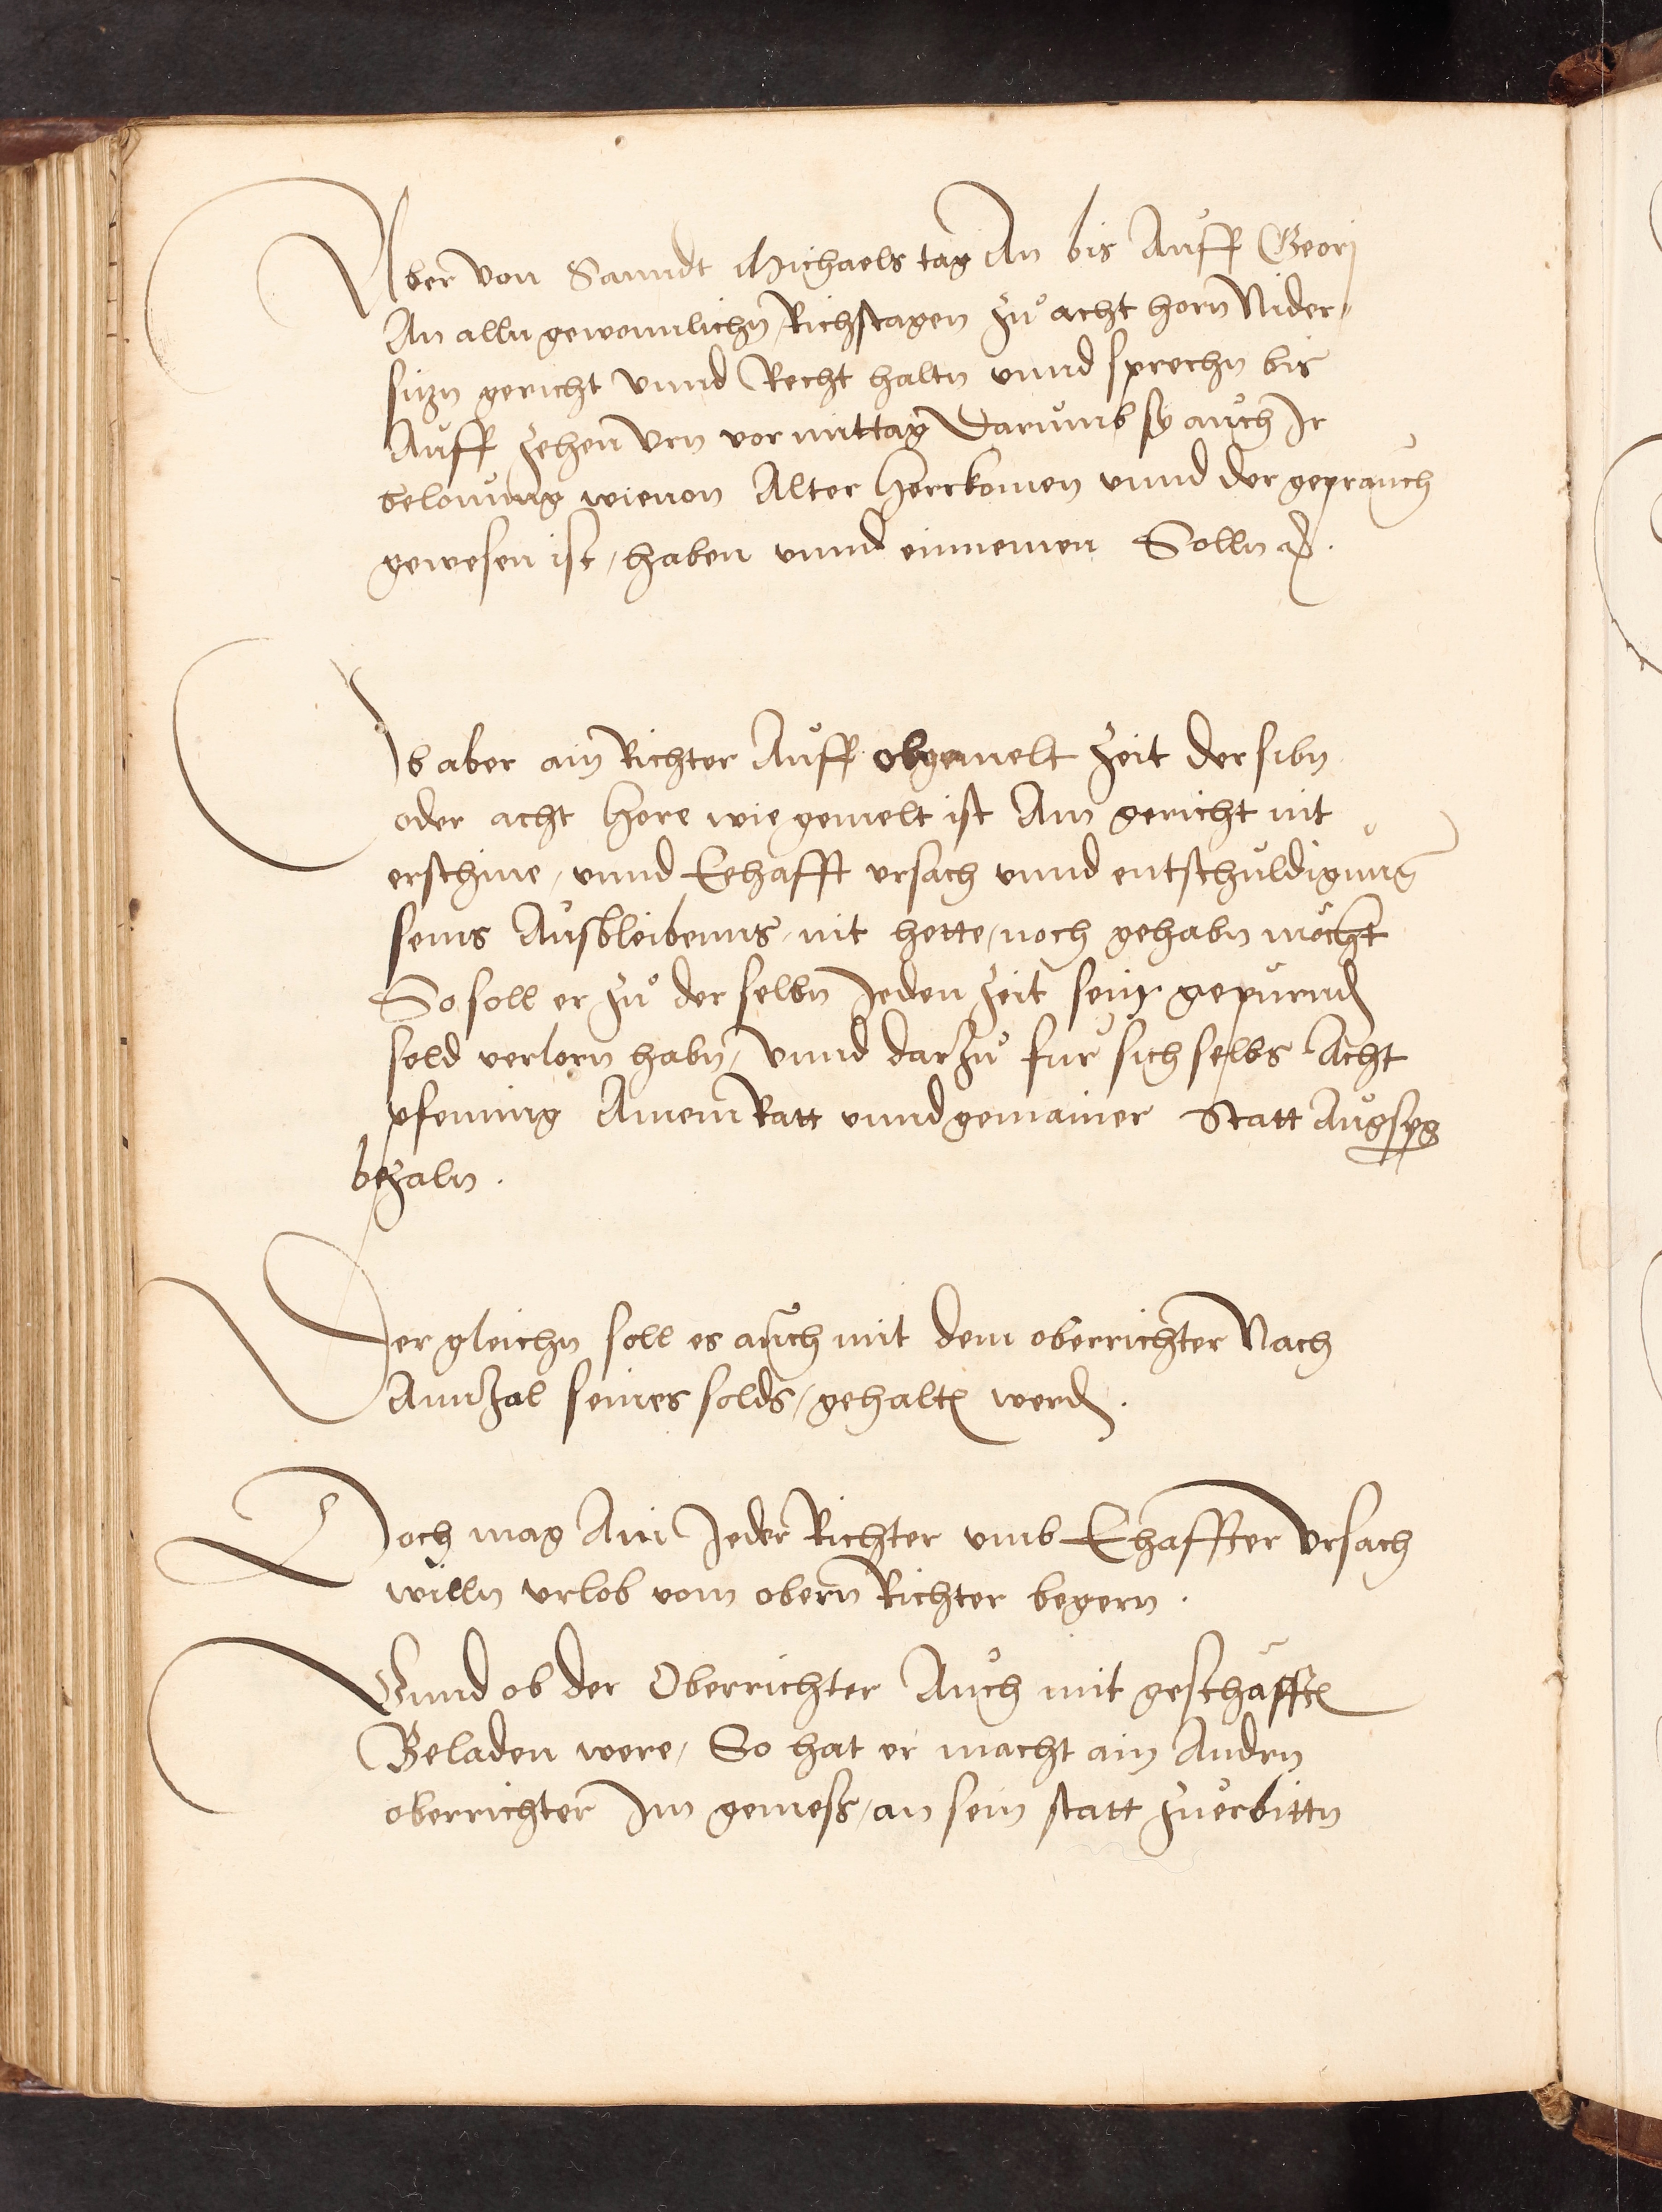 Aber von Sanndt Michaels tag An bis Auff Georj
An alln gewonnlichn Richstagen zu acht horn Nider„
sitzn gericht vnnd Recht haltn vnnd sprechn bis
Auff zehen Vrn vor mittag Darumb sy auch Ir
belonung wie von Alter Herrkomen vnnd der geprauch
gewesen ist, haben vnnd einnemen Solln ꝛc.
Ob aber ain Richter Auff obgemelt Zeit der sibn
oder acht Hore wie gemelt ist Am gericht nit
erschine, vnnd Eehafft vrsach vnnd entschuldigung
seins Ausbleibenns, nit hette, noch gehabn möcht
So soll er zu der selbn Jeden zeit sein gepürnd
sold verlorn habn, Vnnd darzu für sich selbs Acht
pfenning Ainem Ratt vnnd gemainer Statt Augspg
bezaln.
Der gleichn soll es auch mit dem oberrichter Nach
Annzal seines solds, gehalten werden.
Doch mag Ain Jeder Richter vmb Ehaffter Vrsach
willn vrlob vom obern Richter begern.
Vnnd ob der Oberrichter Auch mit geschäfften
Beladen were, So hat er macht ain Andern
oberrichter Im gemeß, an sein statt zuerbittn